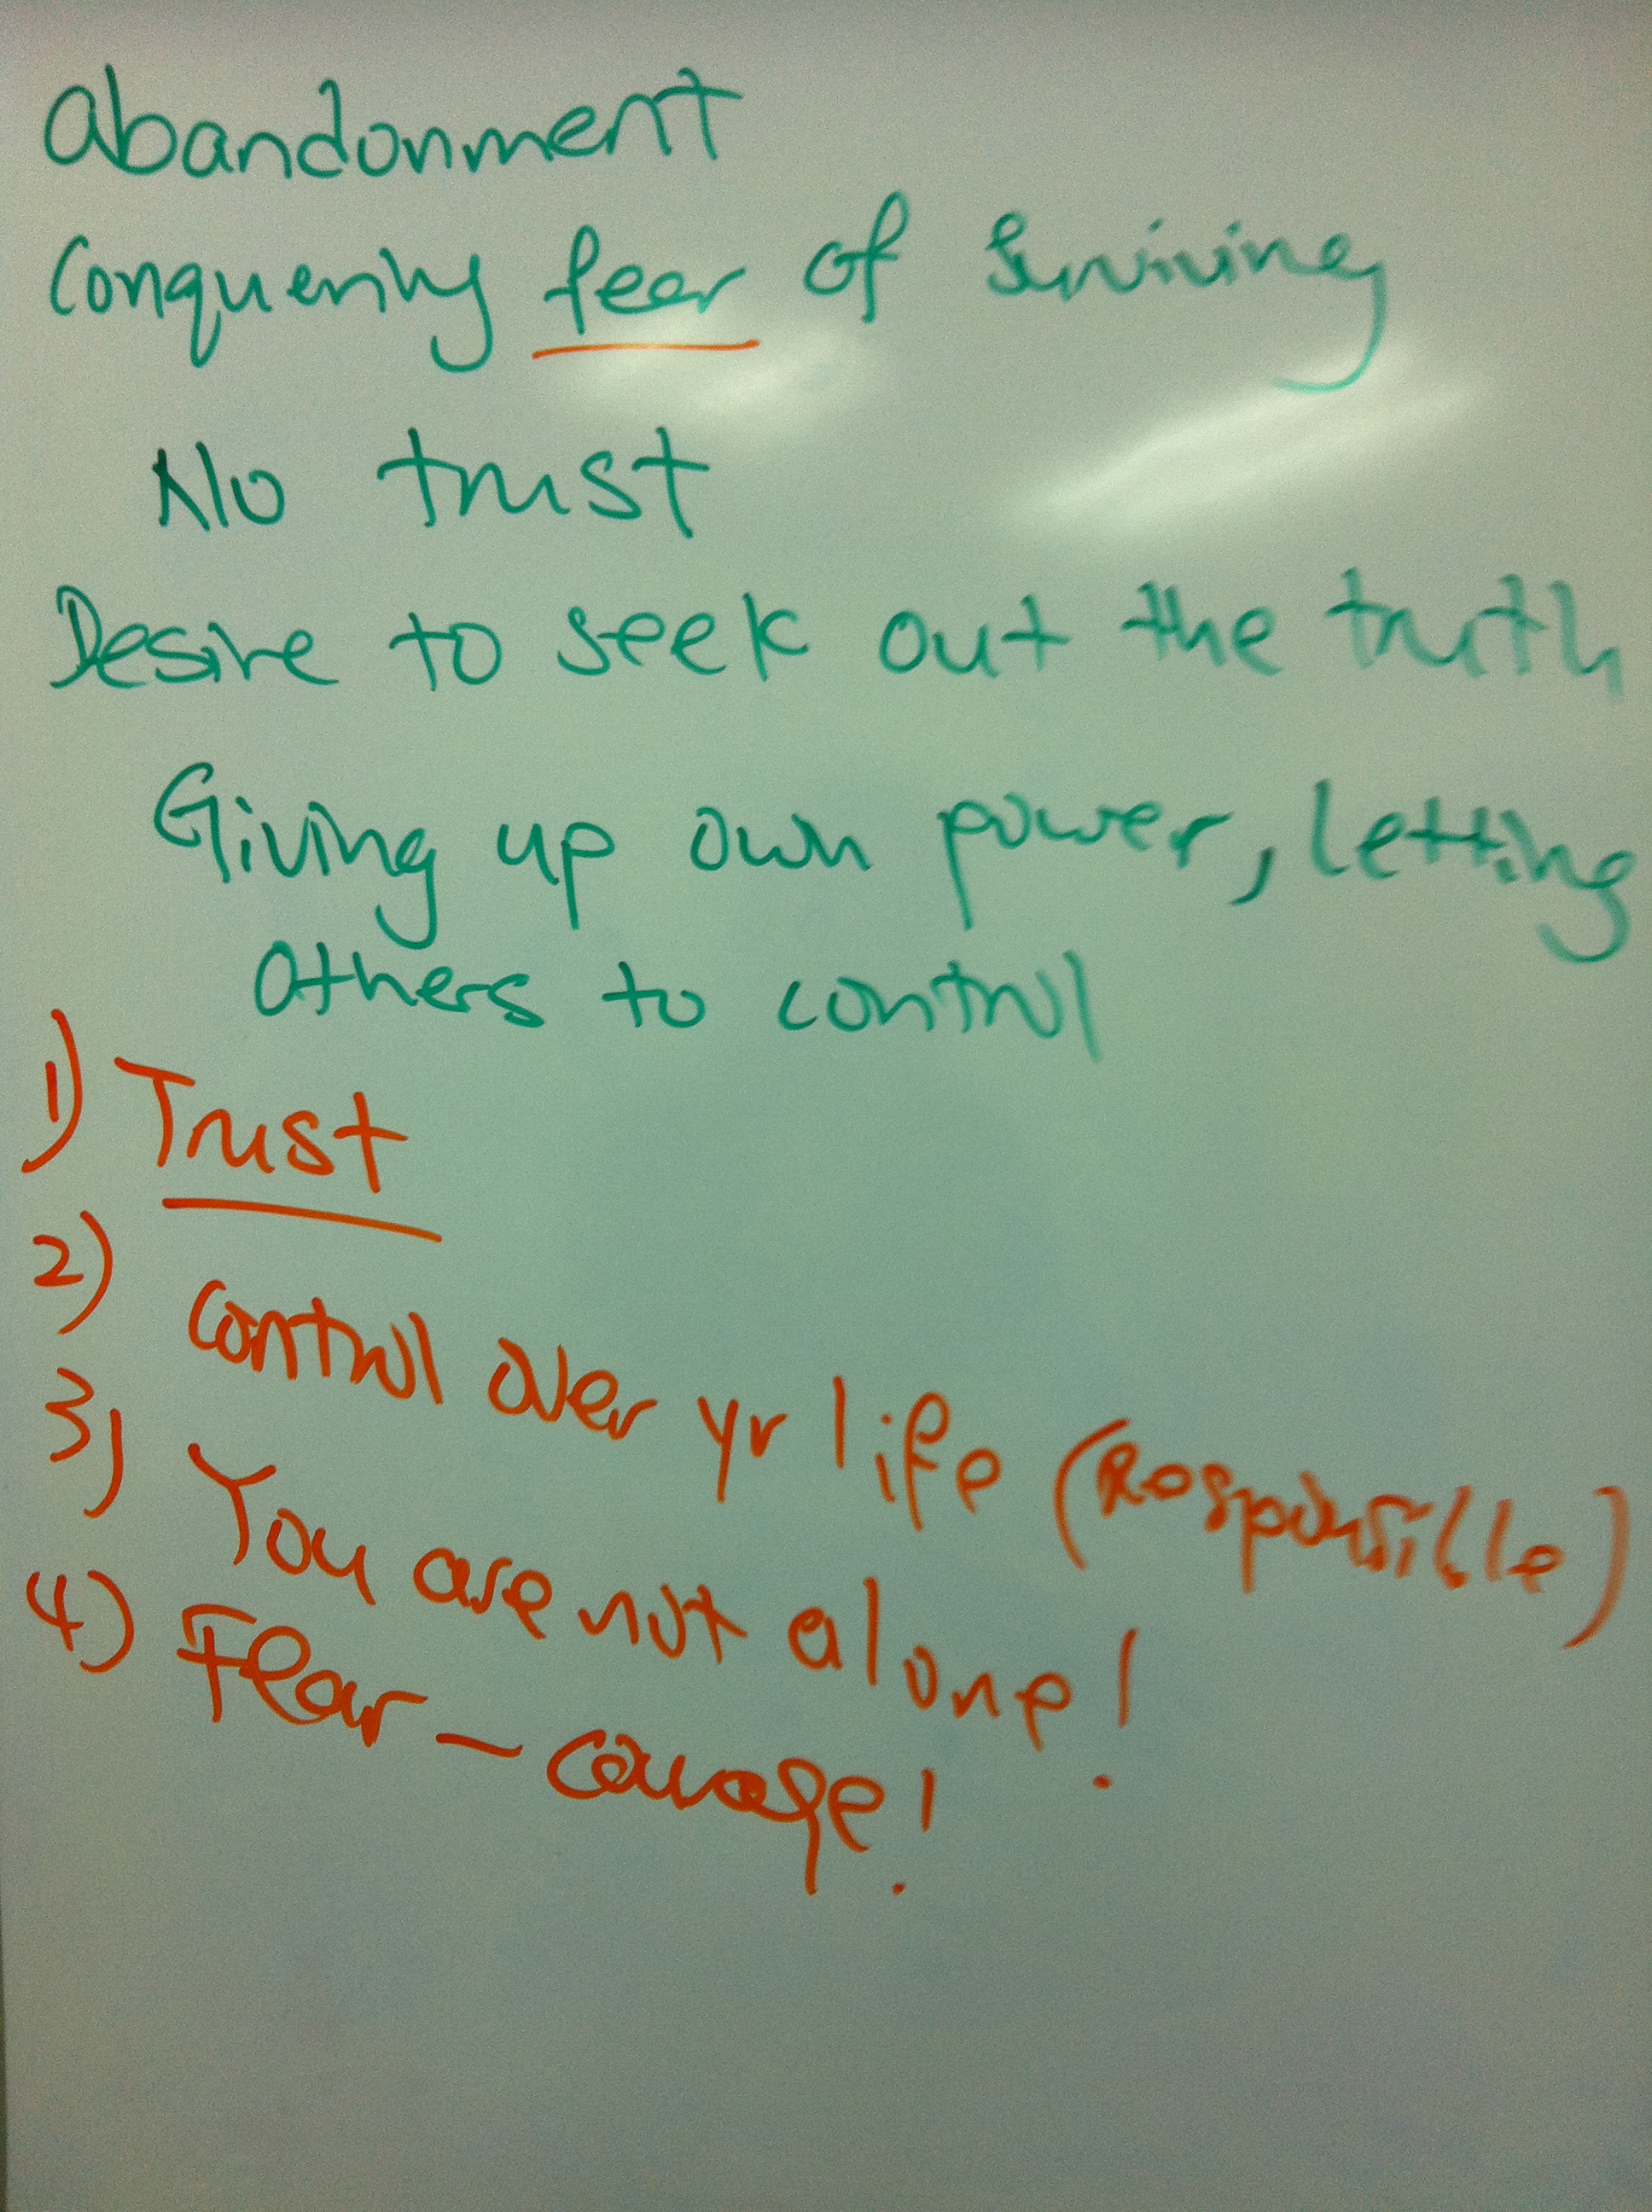 abandonment
Conquering fear of Surviving
No trust
Desire to seek out the truth
Giving up own power, letting
others to control
1) Trust
2) Control over yr life (Responsible)
3) You are not alone!
4) Fear - Courage!